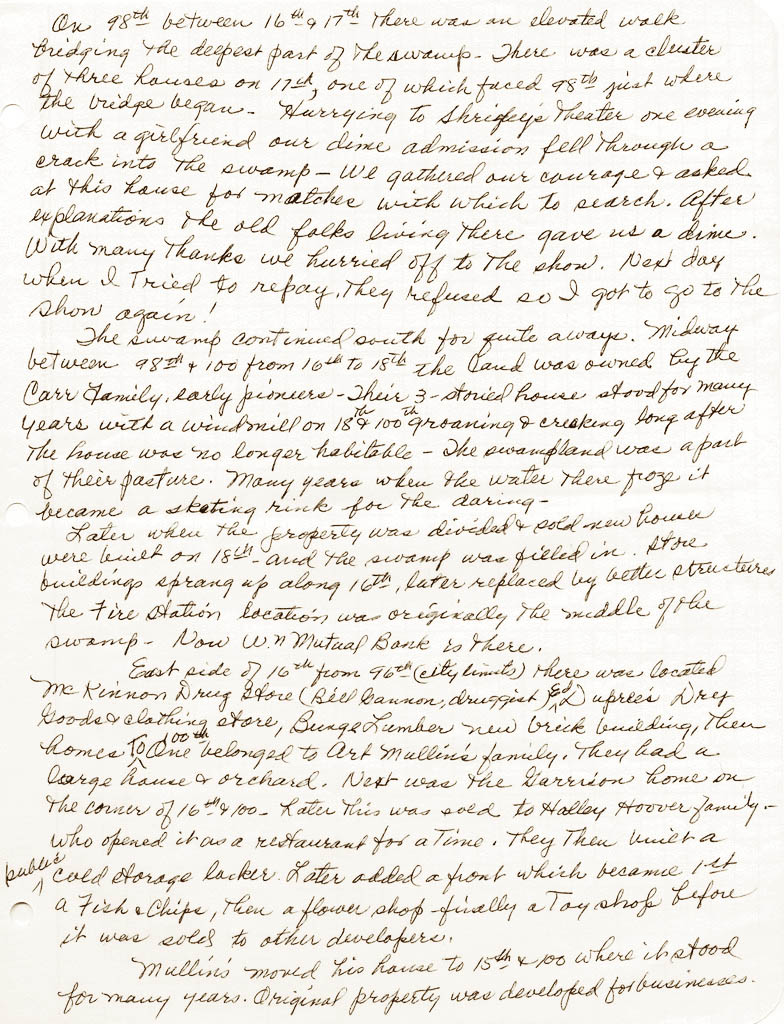 On 98th between 16th & 17th there was an elevated walk
bridging the deepest part of the swamp - There was a cluster
of three houses on 17th, one of which faced 98th just where
the bridge began - Hurrying to Shrigley's Theater one evening
with a girlfriend our dime admission fell through a
crack into the swamp - We gathered our courage & asked
at this house for matches with which to search. After
explanations the old folks living there gave us a dime.
With many thanks we hurried off to the show. Next day
when I tried to repay, they refused so I got to go to the
show again!
The swamp continued south for quite aways. Midway
between 98th & 100 from 16th to 18th the land was owned by the
Carr family, early pioneers - Their 3-storied house stood for many
years with a windmill on 18th & 100th groaning & creaking long after
the house was no longer habitable - The swampland was a part
of their pasture. Many years when the water there froze it
became a skating rink for the daring -
Later when the property was divided & sold new houses
were built on 18th - and the swamp was filled in. Store
buildings sprang up along 16th, later replaced by better structures
The Fire Station location was originally the middle of the
swamp - Now Wn Mutual Bank is there.
East side of 16th from 96th (city limits) there was located
McKinnon Drug Store (Bill Cannon, druggist) Ed Dupree's Dry
Goods & clothing store, Bunge Lumber new brick building, then
homes to 100th One belonged to Art Mullin's family. They had a
large house & orchard. Next was the Garrison home on
the corner of 16th & 100 - Later this was sold to Halley Hoover family -
who opened it as a restaurant for a time. They then built a
public cold storage locker. Later added a front which became 1st
a Fish & Chips, then a flower shop - finally a Toy shop before
it was sold to other developers.
Mullin's moved his house to 15th & 100 where it stood
for many years. Original property was developed for businesses.